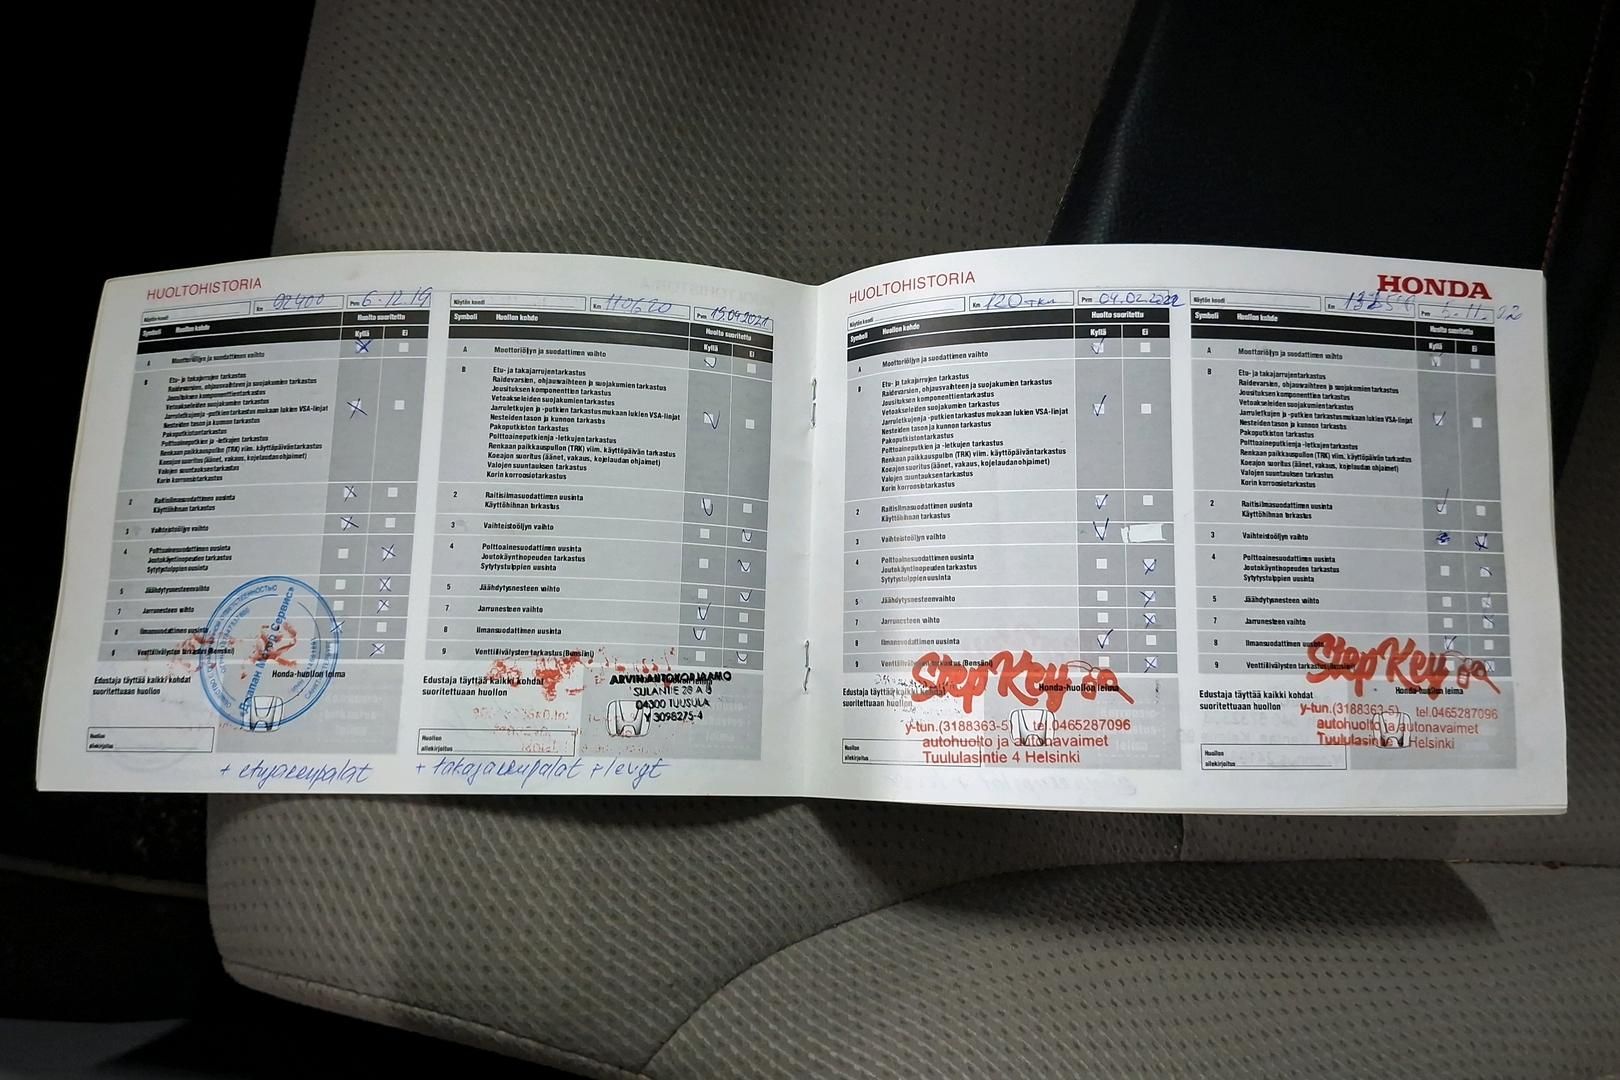 HUOLTOHISTORIA
Näytön koodi
Km 92400
Pvm 6.12.19
Symboli Huollon kohde
Huolto suoritettu
Kyllä Ei
A Moottoriöljyn ja suodattimen vaihto
B Etu- ja takajarrujen tarkastus
Raidevarsien, ohjausvaihteen ja suojakumien tarkastus
Jousituksen komponenttien tarkastus
Vetoakseleiden suojakumien tarkastus
Jarruletkujen ja -putkien tarkastus mukaan lukien VSA-linjat
Nesteiden tason ja kunnon tarkastus
Pakoputkiston tarkastus
Polttoaineputkien ja -letkujen tarkastus
Renkaan paikkauspullon (TRK) viim. käyttöpäivän tarkastus
Koeajon suoritus (äänet, vakaus, kojelaudan ohjaimet)
Valojen suuntauksen tarkastus
Korin korroosiotarkastus
2 Raitisilmasuodattimen uusinta
Käyttöhihnan tarkastus
3 Vaihteistoöljyn vaihto
4 Polttoainesuodattimen uusinta
Joutokäyntinopeuden tarkastus
Sytytystulppien uusinta
5 Jäähdytysnesteen vaihto
7 Jarrunesteen vaihto
8 Ilmansuodattimen uusinta
9 Venttiilivälysten tarkastus (Bensiini)
Edustaja täyttää kaikki kohdat
suoritettuaan huollon
Honda-huollon leima
Сервис
Huollon
allekirjoitus
+ etujarrupalat
Näytön koodi
Km 110620
Pvm 19.04.2021
Symboli Huollon kohde
Huolto suoritettu
Kyllä Ei
A Moottoriöljyn ja suodattimen vaihto
B Etu- ja takajarrujen tarkastus
Raidevarsien, ohjausvaihteen ja suojakumien tarkastus
Jousituksen komponenttien tarkastus
Vetoakseleiden suojakumien tarkastus
Jarruletkujen ja -putkien tarkastus mukaan lukien VSA-linjat
Nesteiden tason ja kunnon tarkastus
Pakoputkiston tarkastus
Polttoaineputkien ja -letkujen tarkastus
Renkaan paikkauspullon (TRK) viim. käyttöpäivän tarkastus
Koeajon suoritus (äänet, vakaus, kojelaudan ohjaimet)
Valojen suuntauksen tarkastus
Korin korroosiotarkastus
2 Raitisilmasuodattimen uusinta
Käyttöhihnan tarkastus
3 Vaihteistoöljyn vaihto
4 Polttoainesuodattimen uusinta
Joutokäyntinopeuden tarkastus
Sytytystulppien uusinta
5 Jäähdytysnesteen vaihto
7 Jarrunesteen vaihto
8 Ilmansuodattimen uusinta
9 Venttiilivälysten tarkastus (Bensiini)
Edustaja täyttää kaikki kohdat
suoritettuaan huollon
ARVIN AUTOKORJAAMO
SULANTIE 28 A
04300 TUUSULA
Y 3098275-4
Huollon
allekirjoitus
+ takajarrupalat + levyt
HUOLTOHISTORIA
Näytön koodi
Km 120 tkm
Pvm 04.02.2022
Symboli Huollon kohde
Huolto suoritettu
Kyllä Ei
A Moottoriöljyn ja suodattimen vaihto
B Etu- ja takajarrujen tarkastus
Raidevarsien, ohjausvaihteen ja suojakumien tarkastus
Jousituksen komponenttien tarkastus
Vetoakseleiden suojakumien tarkastus
Jarruletkujen ja -putkien tarkastus mukaan lukien VSA-linjat
Nesteiden tason ja kunnon tarkastus
Pakoputkiston tarkastus
Polttoaineputkien ja -letkujen tarkastus
Renkaan paikkauspullon (TRK) viim. käyttöpäivän tarkastus
Koeajon suoritus (äänet, vakaus, kojelaudan ohjaimet)
Valojen suuntauksen tarkastus
Korin korroosiotarkastus
2 Raitisilmasuodattimen uusinta
Käyttöhihnan tarkastus
3 Vaihteistoöljyn vaihto
4 Polttoainesuodattimen uusinta
Joutokäyntinopeuden tarkastus
Sytytystulppien uusinta
5 Jäähdytysnesteen vaihto
7 Jarrunesteen vaihto
8 Ilmansuodattimen uusinta
9 Venttiilivälysten tarkastus (Bensiini)
Edustaja täyttää kaikki kohdat
suoritettuaan huollon
Honda-huollon leima
Step Key
y-tun.(3188363-5) tel.0465287096
autohuolto ja autonavaimet
Tuululasintie 4 Helsinki
Huollon
allekirjoitus
HONDA
Näytön koodi
Km
Pvm 5.11.22
Symboli Huollon kohde
Huolto suoritettu
Kyllä Ei
A Moottoriöljyn ja suodattimen vaihto
B Etu- ja takajarrujen tarkastus
Raidevarsien, ohjausvaihteen ja suojakumien tarkastus
Jousituksen komponenttien tarkastus
Vetoakseleiden suojakumien tarkastus
Jarruletkujen ja -putkien tarkastus mukaan lukien VSA-linjat
Nesteiden tason ja kunnon tarkastus
Pakoputkiston tarkastus
Polttoaineputkien ja -letkujen tarkastus
Renkaan paikkauspullon (TRK) viim. käyttöpäivän tarkastus
Koeajon suoritus (äänet, vakaus, kojelaudan ohjaimet)
Valojen suuntauksen tarkastus
Korin korroosiotarkastus
2 Raitisilmasuodattimen uusinta
Käyttöhihnan tarkastus
3 Vaihteistoöljyn vaihto
4 Polttoainesuodattimen uusinta
Joutokäyntinopeuden tarkastus
Sytytystulppien uusinta
5 Jäähdytysnesteen vaihto
7 Jarrunesteen vaihto
8 Ilmansuodattimen uusinta
9 Venttiilivälysten tarkastus (Bensiini)
Edustaja täyttää kaikki kohdat
suoritettuaan huollon
Honda-huollon leima
Step Key
y-tun.(3188363-5) tel.0465287096
autohuolto ja autonavaimet
Tuululasintie 4 Helsinki
Huollon
allekirjoitus